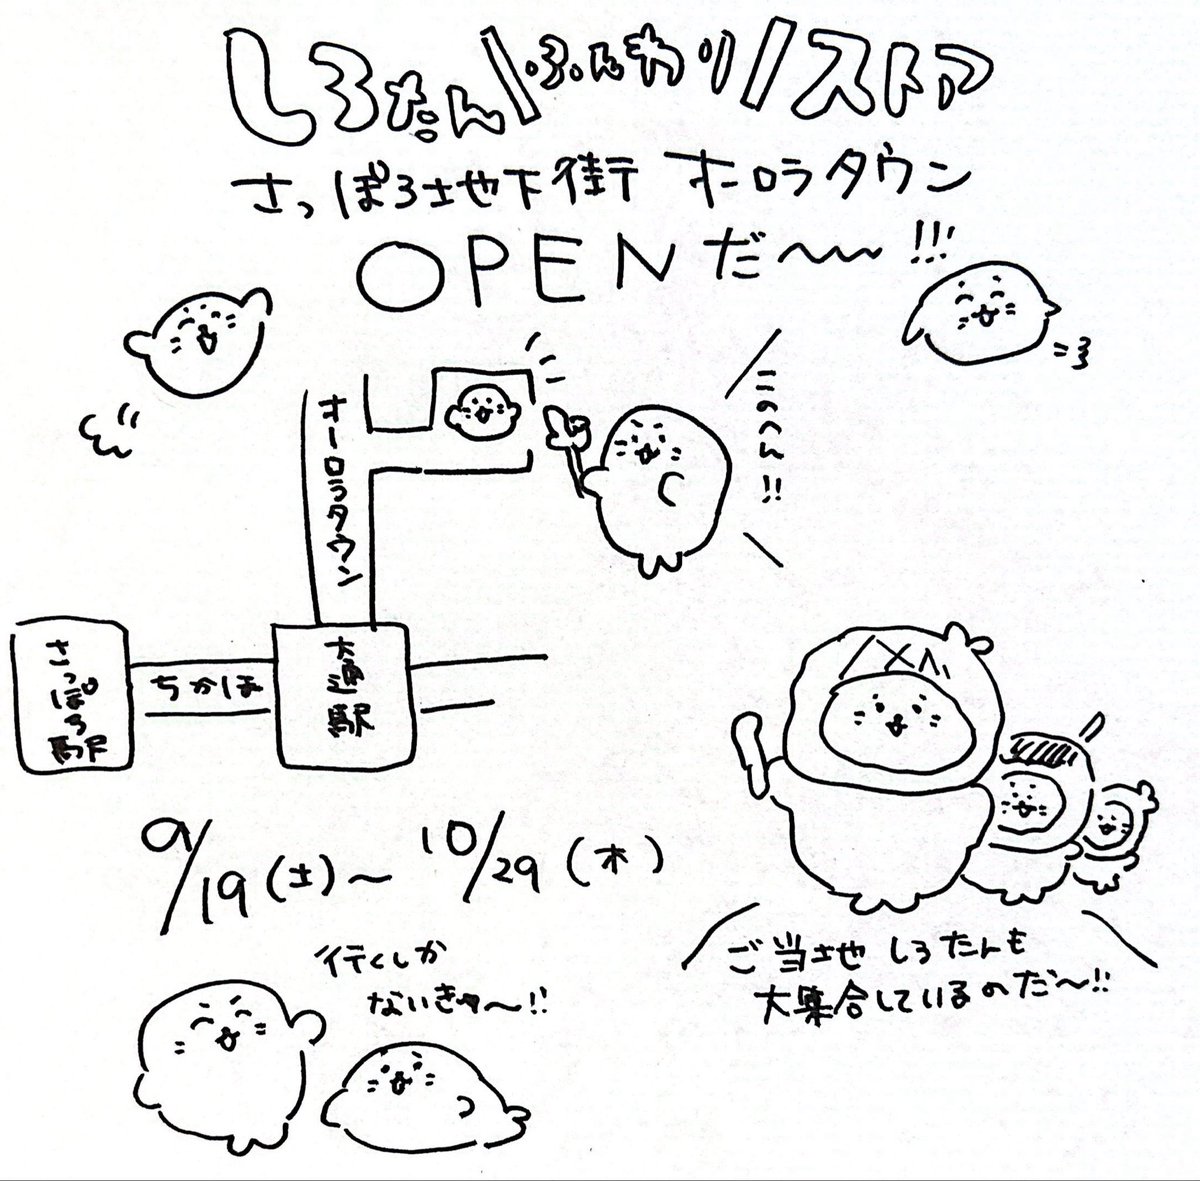 しろたん\ふんわり/ストア
さっぽろ地下街 オーロラタウン
OPENだ〜〜!!!
オーロラタウン
このへん!!
さっぽろ駅
ちかほ
大通駅
9/19(土)〜10/29(木)
行くしか
ないきゅ〜!!
ご当地しろたんも
大集合しているのだ〜!!